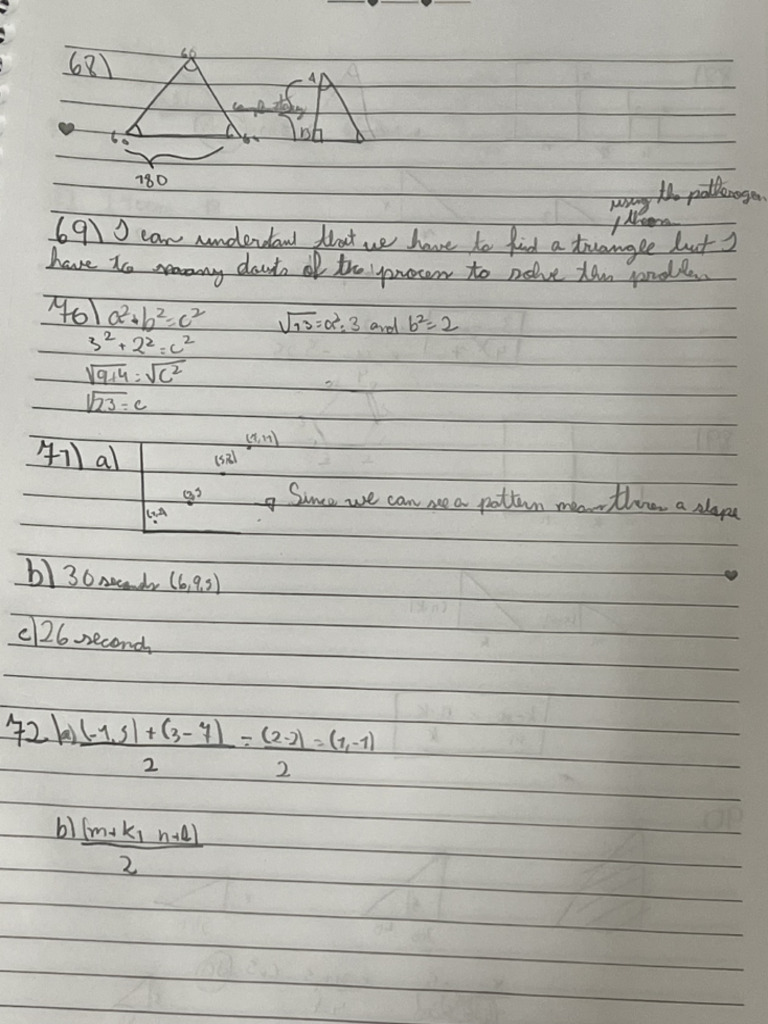 68)
60
A
60
60
B
180
using the patherogen
theorem
69) I can understand that we have to find a triangle but I
have to many douts of the process to solve this problem
70) a²+b²=c² √13=a²=3 and b²=2
3²+2²=c²
√9+4=√c²
√13=c
71) a)
(7,11)
(5,8)
(3,5)
→ Since we can see a pattern mean theres a slope
b) 30 seconds (6,9,5)
c) 26 seconds
72) a) (-1,5)+(3-7) = (2-2) = (1,-1)
2 2
b) (m+k, n+l)
2